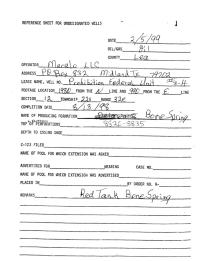 REFERENCE SHEET FOR UNDESIGNATED WELLS
DATE 2/5/99
OIL/GAS Oil
COUNTY Lea
OPERATOR LLC
ADDRESS P.O. Box 832 Midland Tx 79702
LEASE NAME, WELL NO. Prohibition Federal Unit #4
FOOTAGE LOCATION 1980 FROM THE N LINE AND 990 FROM THE E LINE
SECTION 12 TOWNSHIP 22S RANGE 32E
COMPLETION DATE 8/13/98
NAME OF PRODUCING FORMATION Bone Spring
TOP OF PERFORATIONS 8826-8835
DEPTH TO CASING SHOE
C-123 FILED
NAME OF POOL FOR WHICH EXTENSION WAS ASKED
ADVERTISED FOR HEARING CASE NO.
NAME OF POOL FOR WHICH EXTENSION WAS ADVERTISED
PLACED IN BY ORDER NO. R-
REMARKS Red Tank Bone Spring